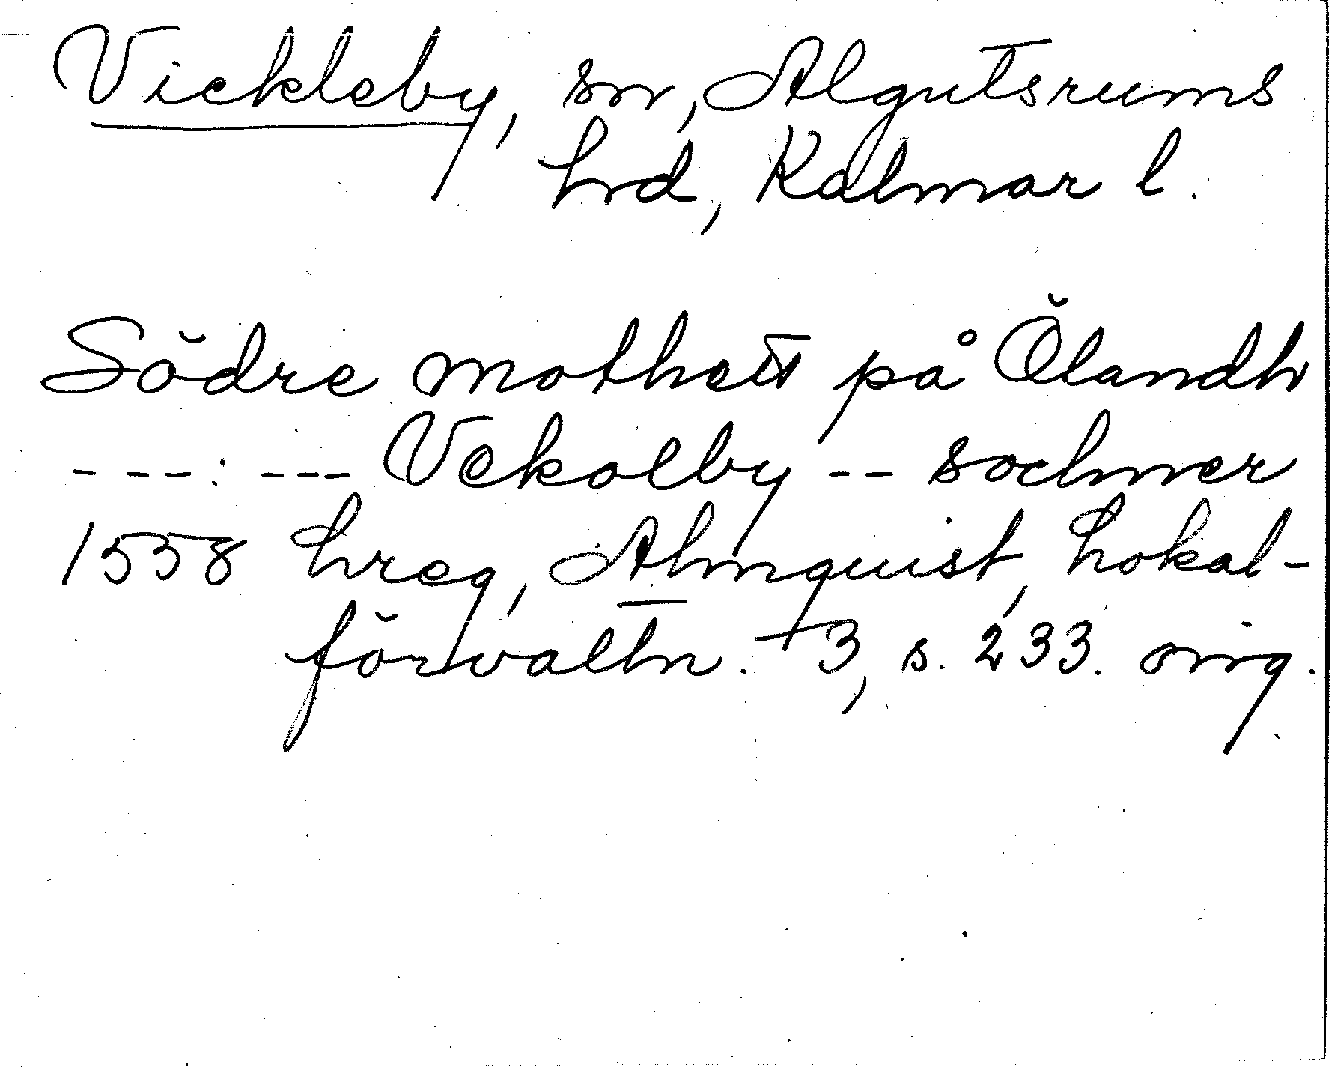 Vickleby, sn, Algutsrums
hrd, Kalmar l.
Södre mothett på Ölandh
---:--- Vekolby -- sochner
1558 hreg, Almquist, Lokal-
förvaltn. +3, s. 233. orig.